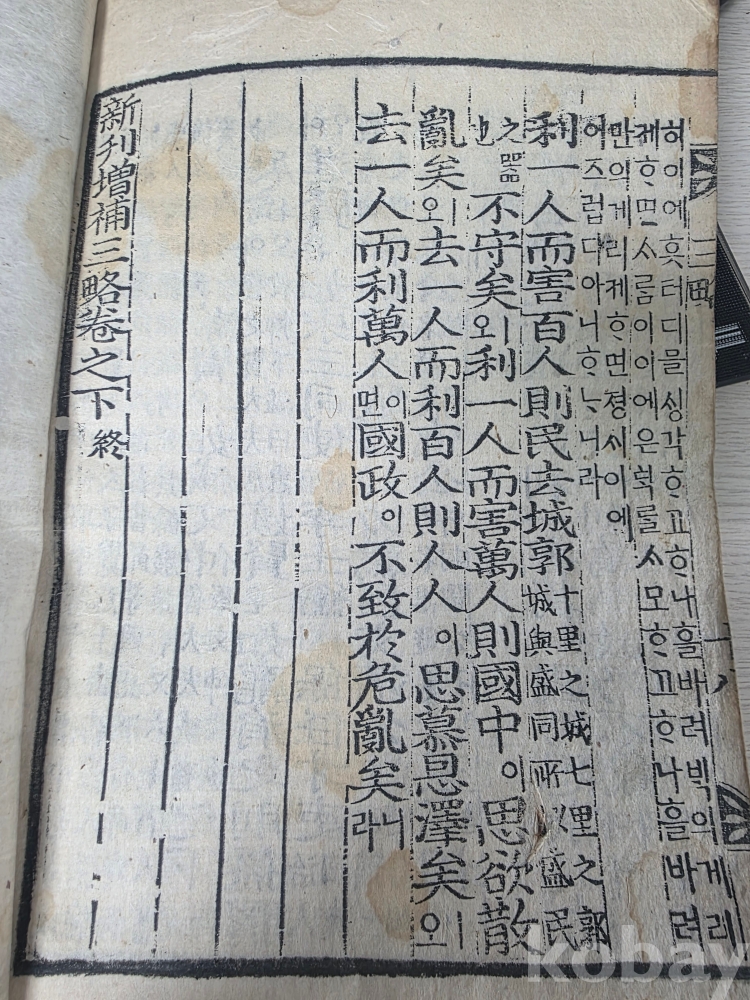 히이에흣터디믈싱각ᄒᆞ고ᄒᆞ나흘바려빅의게리
제ᄒᆞ면ᄉᆞ룸이이에은혁룰ᄉᆞ모ᄒᆞ고ᄒᆞ나흘바려
만의게리제ᄒᆞ면졍시이에
어즈럽디아니ᄒᆞᄂᆞ니라
利一人而害百人則民去城郭十里之城七里之郭
城與盛同所以盛民
之器
也
不守矣ㅣ오利一人而害萬人則國中이思欲散
亂矣ㅣ오去一人而利百人則人人이思慕恩澤矣ㅣ오
去一人而利萬人이면國政이不致於危亂矣니라
新刊增補三略卷之下終
kobay